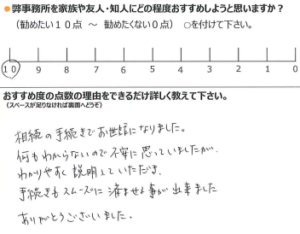 ● 弊事務所を家族や友人・知人にどの程度おすすめしようと思いますか？
（勧めたい１０点 ～ 勧めたくない０点） ○を付けて下さい。
10 9 8 7 6 5 4 3 2 1 0
おすすめ度の点数の理由をできるだけ詳しく教えて下さい。
（スペースが足りなければ裏面へどうぞ）
相続の手続きでお世話になりました。
何もわからないので不安に思っていましたが、
わかりやすく説明していただき、
手続きもスムーズに済ませる事が出来ました
ありがとうございました。